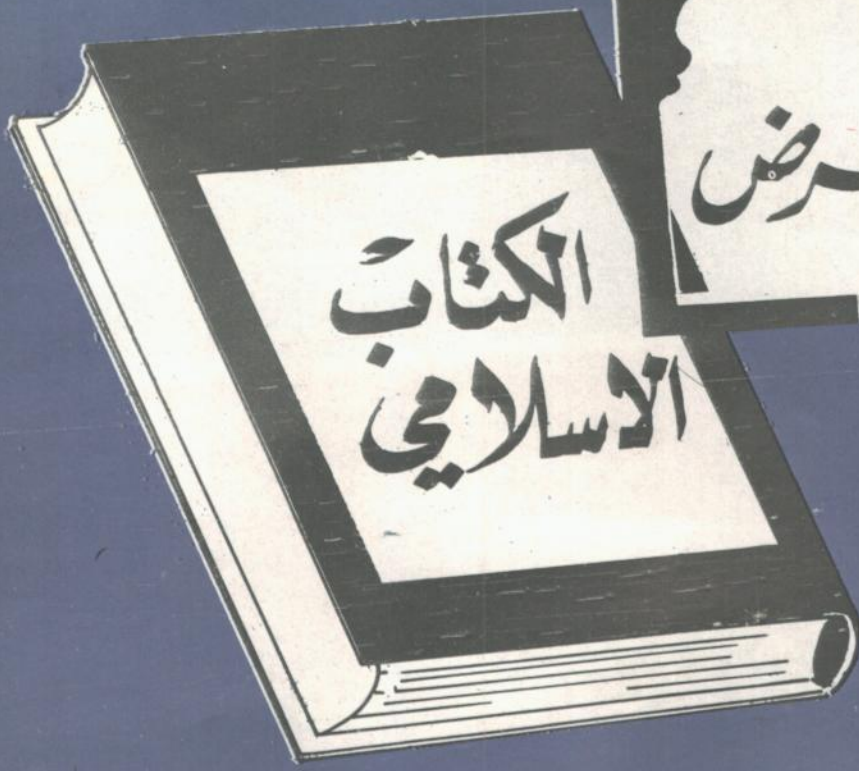 ـرض
الكتاب
الاسلامي